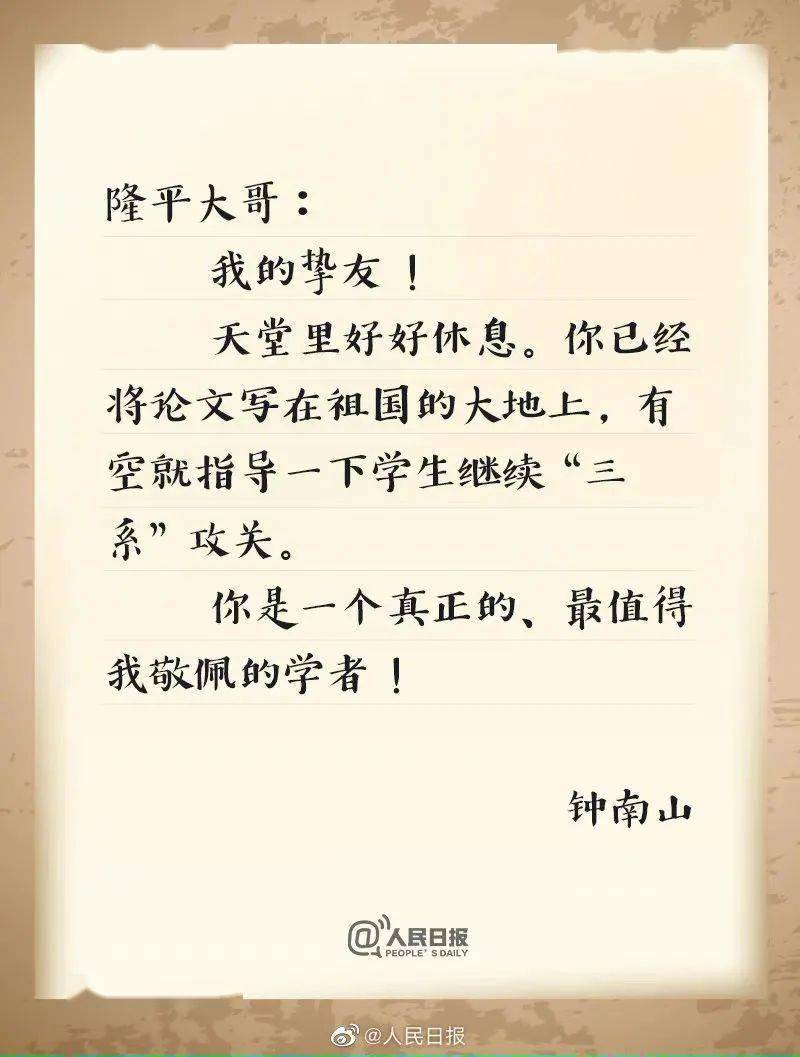 隆平大哥：
我的挚友！
天堂里好好休息。你已经
将论文写在祖国的大地上，有
空就指导一下学生继续“三
系”攻关。
你是一个真正的、最值得
我敬佩的学者！
钟南山
@人民日报
PEOPLE'S DAILY
@人民日报